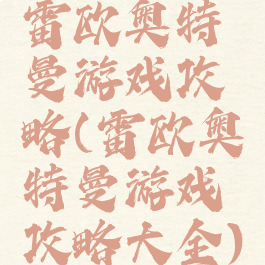 雷欧奥特
曼游戏攻
略(雷欧奥
特曼游戏
攻略大全)